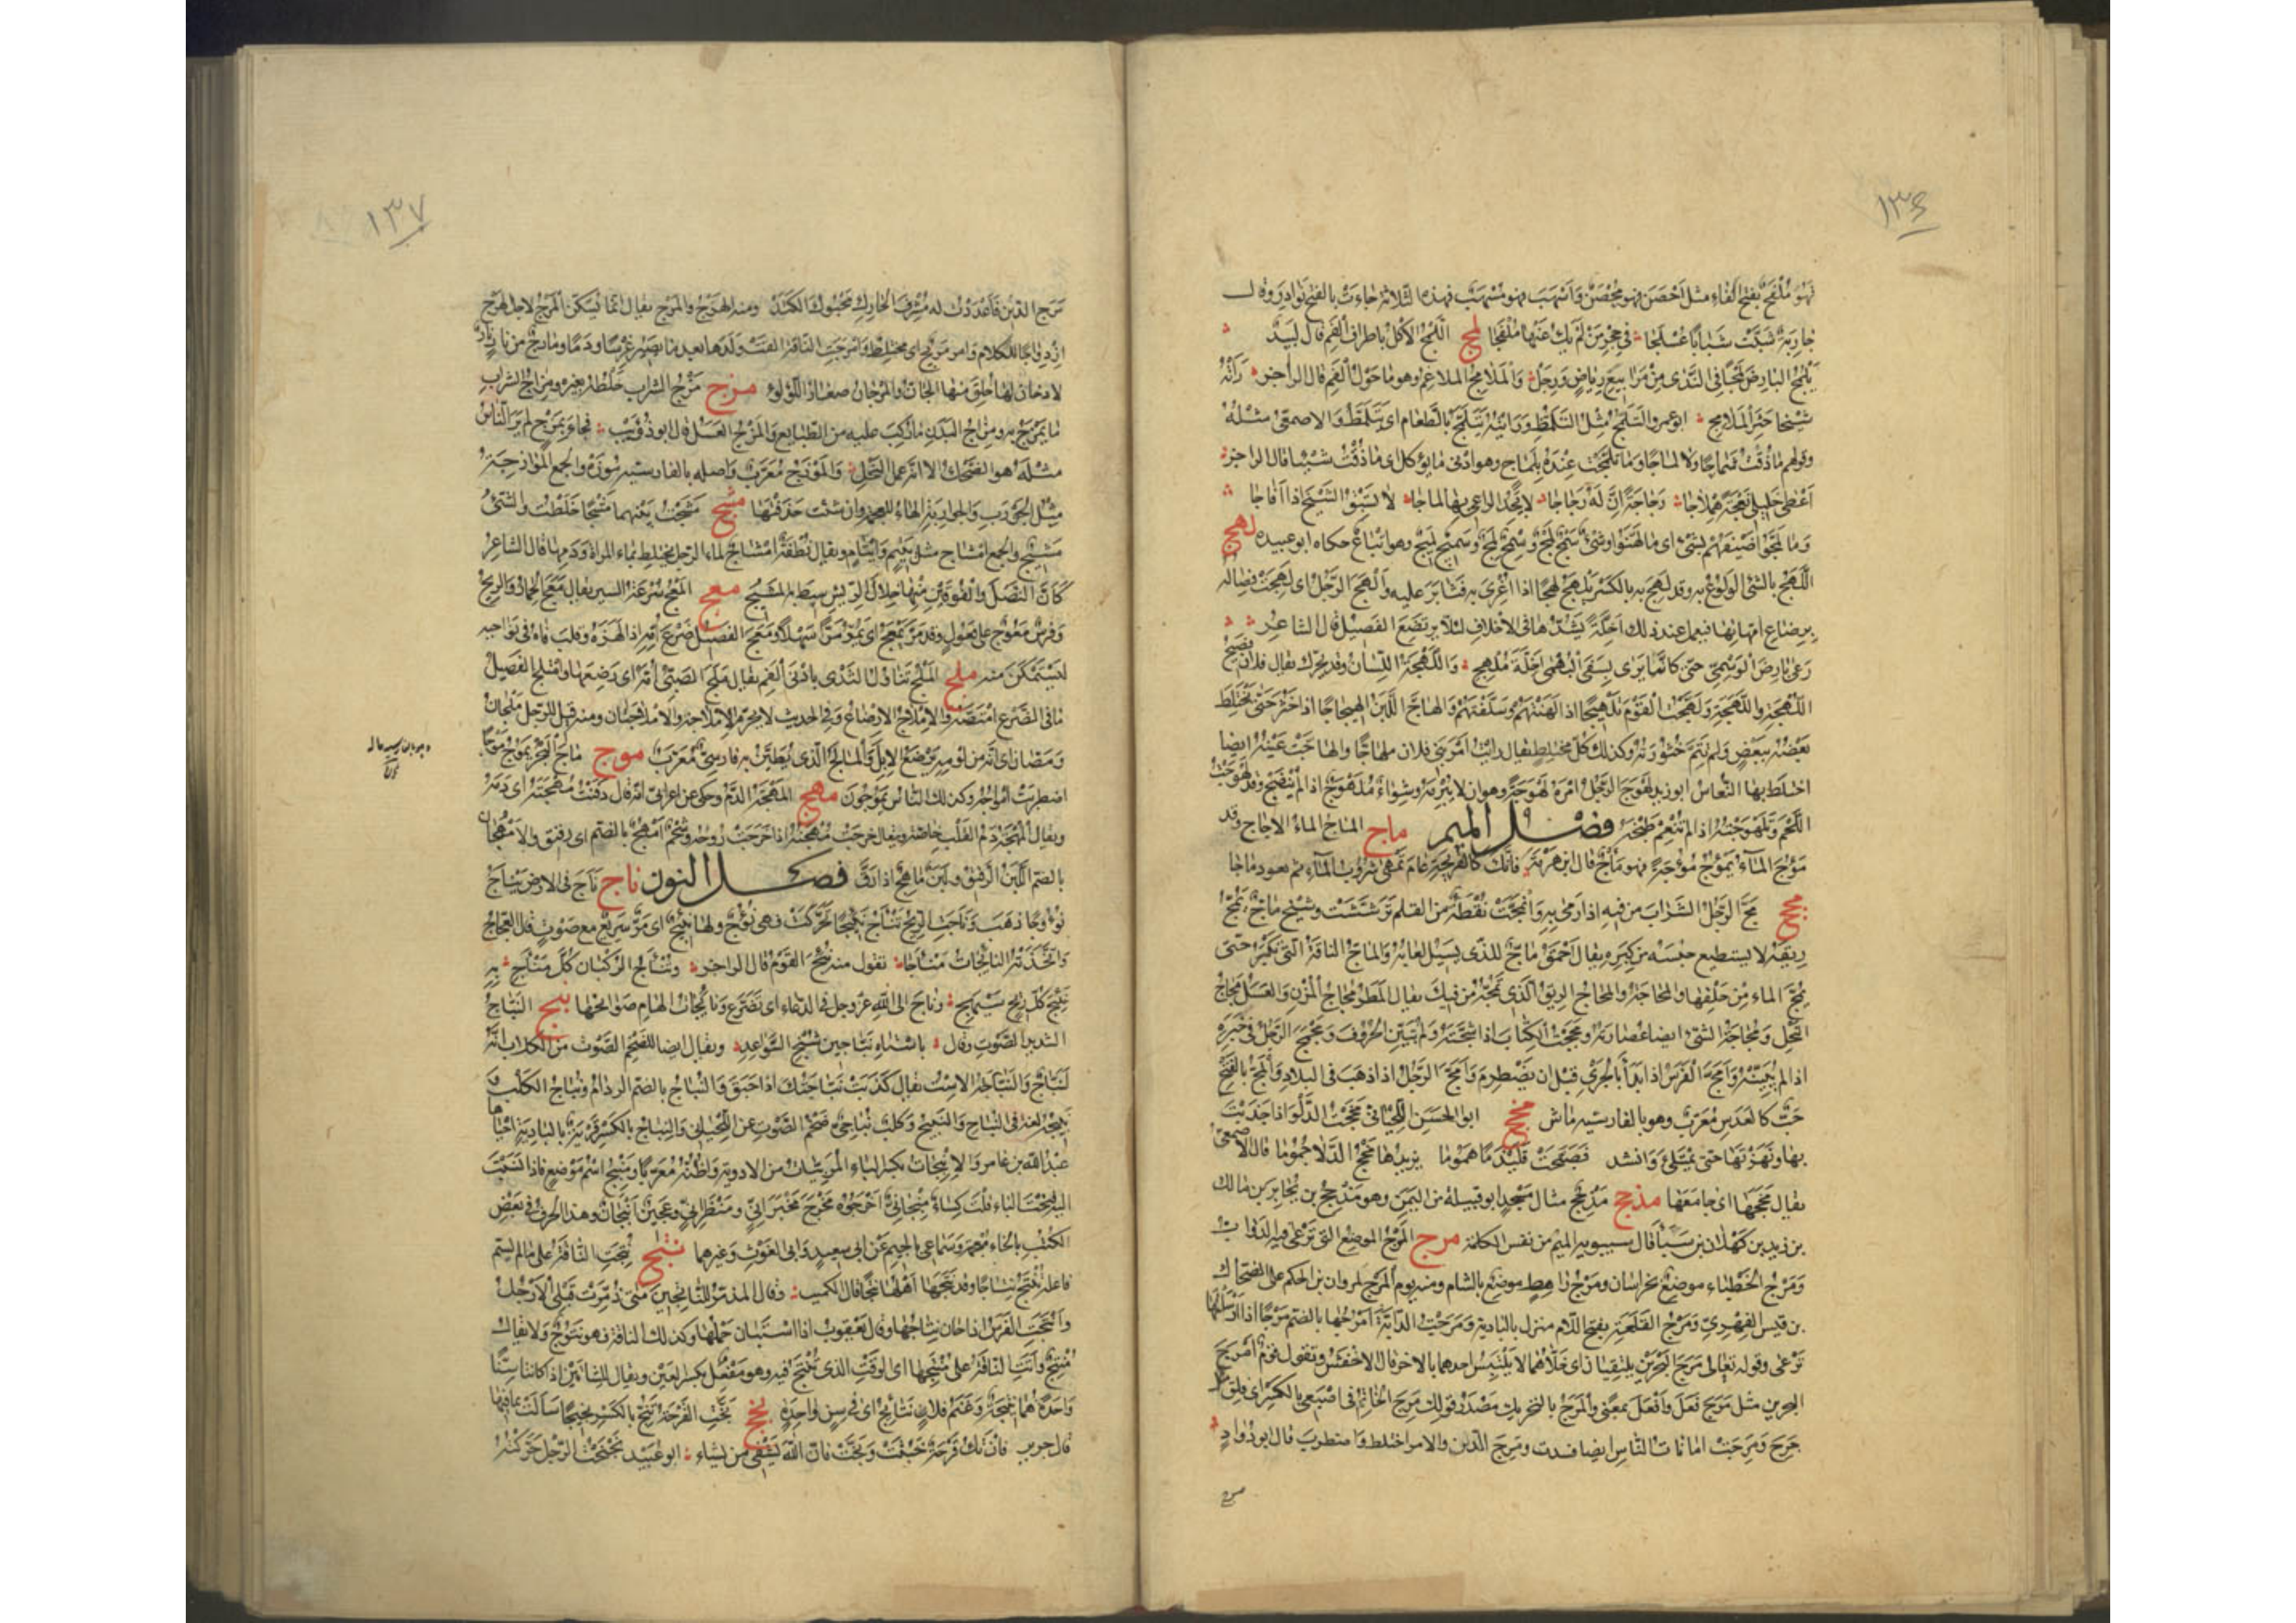 ١٣٦
فهو مُلْفَجٌ بفتح الفاء مثل اَحْصَنَ فهو مُحْصَنٌ وَاَسْهَبَ فهو مُسْهَبٌ فهذه الثلاثة جاءت بالفتح نوادر وقال
جارية شَبَّتْ شبابًا عُسْلُجًا في حِجْرِ مَنْ لم يَكُ عنها مُلْفَجًا لمج اللَّمْجُ الاكل باطراف الفم قال لبيد
يَلْمُجُ البارِضَ لَمْجًا في النَّدَى مِنْ مَرابيعِ رِياضٍ وَرِجَلْ وَالمَلامِجُ المَلاغِم وهو ما حول الفم قال الراجز رَأَتْهُ
شيخا حَثِرَ المَلامِجِ ابو عمرو التَّلَمُّجُ مثل التَّلَمُّظِ وَرأيته يَتَلَمَّجُ بالطعام اى يَتَلَمَّظُ والاصمعى مثله
وقولهم ما ذُقْتُ شَماجًا ولا لَماجًا وما تَلَمَّجْتُ عنده بِلَماجٍ وهو ادنى ما يؤكل اى ما ذقت شيئا قال الراجز
اَعْطَى خليلى نَعْجَةً هِمْلاجا رَجاجَةً اِنَّ لَهُ رَجاجا لا يَجِدُ الراعى بها لَماجا لا تَسْبِقُ الشيخَ اذا اَفاجا
وما لَمَّجُوا ضيفهم بشئ اى ما لَهَّنُوا وشئ سَمْجٌ لَمْجٌ وسَمِجٌ لَمِجٌ وسَمِيجٌ لَمِيجٌ وهو اتباع حكاه ابو عبيدة لهج
اللَّهَجُ بالشئ الولوع به وقد لَهِجَ به بالكسر يَلْهَجُ لَهَجًا اذا اُغْرِىَ به فثابر عليه وَاَلْهَجَ الرجل اى لَهِجَتْ فصاله
برضاع امهاتها فيعمل عند ذلك اَخِلَّةً يشدّها فى الاخلاف لئلا يرتضع الفصيل قال الشاعر
رَعَى بارِضَ الوَسْمِىِّ حتى كانما يَرَى بِسَفَى البُهْمَى اَخِلَّةَ مُلْهِجِ وَاللَّهْجَةُ اللسان وقد يحرّك يقال فلان فصيح
اللَّهْجَةِ واللَّهَجَةِ ولَهَّجْتُ القوم تلهيجا اذا لَهَّنْتَهُمْ وسَلَّفْتَهُمْ وَالهاجَّ اللبن الهيجاجا اذا خثر حتى يختلط
بعضه ببعض ولم تتمّ خثورته وكذلك كلّ مختلط يقال رأيت امر بنى فلان ملهاجّا والهاجّت عينه ايضا
اختلط بها النعاس ابو زيد لَهْوَجَ الرجل امره لَهْوَجَةً وهو ان لا يُبْرِمَه وشِواءٌ مُلَهْوَجٌ اذا لم ينضج وقد لَهْوَجْتُ
اللحم وتَلَهْوَجْتُه اذا لم تُنْعِم طبخه فصل الميم ماج المَاْجُ الماء الاجاج وقد
مَؤُجَ الماءُ يَمْؤُجُ مُؤُوجَةً فهو مَأْجٌ قال ابن هرمة فانك كالقريحة عامَ تُمْهَى شَرُوبُ الماء ثم تعود ماجا
مجج مَجَّ الرجل الشراب من فيه اذا رمى به وَانْمَجَّتْ نقطة من القلم ترششت وشيخ ماجّ يَمُجُّ
ريقه لا يستطيع حبسه من كبره يقال احمق ماجّ للذى يسيل لعابه والماجّ الناقة التى تكبر حتى
تَمُجَّ الماء من حلقها والمُجاجة والمُجاج الريق الذى تَمُجُّه من فيك يقال المطر مُجاج المُزْنِ والعسل مُجاج
النحل ومُجاجة الشئ ايضا عُصارته ومَجْمَجْتُ الكتاب اذا ثَبَّجْتَه ولم تبيّن الحروف ومَجْمَجَ الرجل فى خبره
اذا لم يبيّنه وَاَمَجَّ الفرس اذا بدأ بالجرى قبل ان يضطرم وَاَمَجَّ الرجل اذا ذهب فى البلاد والمَجّ بالفتح
حَبٌّ كالعدس معرّب وهو بالفارسية ماش مخج ابو الحسن اللحيانى مَخَجْتُ الدَّلْوَ اذا جذبت
بها ونهزتها حتى تمتلئ وانشد فَصَبَّحَتْ قَلَيْذَمًا هَمُومَا يزيدها مَخْجُ الدِّلا جُمُومَا قال الاصمعى
يقال مَخَجَها اى جامعها مذحج مَذْحِجٌ مثال مسجد ابو قبيلة من اليمن وهو مذحج بن يحابر بن مالك
بن زيد بن كهلان بن سبأ قال سيبويه الميم من نفس الكلمة مرج المَرْجُ الموضع التى ترعى فيه الدواب
ومَرْجُ الخُطَباء موضع بخراسان ومَرْجُ راهط موضع بالشام ومنه يوم المَرْج لمروان بن الحكم على الضحاك
بن قيس الفهرى ومَرْجُ القَلَعَة بفتح اللام منزل بالبادية ومَرَجْتُ الدابة اَمْرُجُها بالضم مَرْجًا اذا ارسلتها
ترعى وقوله تعالى مَرَجَ البحرين يلتقيان اى خلّاهما لا يلتبس احدهما بالاخر قال الاخفش وتقول قوم اَمْرَجَ
البحرين مثل مَرَجَ فَعَلَ وَاَفْعَلَ بمعنى والمَرَجُ بالتحريك مصدر قولك مَرِجَ الخاتم فى اصبعى بالكسر اى قلق مثل
جَرِجَ ومَرِجَتْ امانات الناس ايضا فسدت ومَرِجَ الدين والامر اختلط واضطرب قال ابو دواد
مرج
١٣٧
مَرِجَ الدِّينُ فَاَعْدَدْتُ له مُشْرِفَ الحارِكِ مَحْبُوكَ الكَتَدْ ومنه الهَرْجُ والمَرْجُ يقال انما يسكّن المَرْجُ لاجل الهرج
ازدواجا للكلام وامر مَرِيجٌ اى مختلط وَاَمْرَجَتِ الناقة القت ولدها بعد ما يصير غِرْسًا ودمًا ومارِجٌ من نار نار
لا دخان لها خلق منها الجانّ والمَرْجانُ صغار اللؤلؤ مزج مَزْجُ الشراب خلطه بغيره ومِزاج الشراب
ما يمزج به ومزاج البدن ما ركّب عليه من الطبايع والمَزْجُ العسل قال ابو ذؤيب فجاء بمَزْجٍ لم ير الناس
مثله هو الضَّحْكُ الا انه عمل النحل والمَوْزَجُ معرّب واصله بالفارسية موزه والجمع الموازجة
مثل الجَوْرَبِ والجواربة الهاء للعجمة وان شئت حذفتها مشج مَشَجْتُ بينهما مَشْجًا خلطت والشئ
مَشِيجٌ والجمع امشاج مثل يتيم وايتام ويقال نطفة امشاج لماء الرجل يختلط بماء المرأة ودمها قال الشاعر
كانّ النصل والفوقين منها خلال الريش سيط به المشيج معج المَعْجُ سرعة السير يقال مَعَجَ الحمار والريح
وفرس مَعُوجٌ على فَعُول وقد مَرَّ يَمْعَجُ اى يمرّ مرًّا سهلا ومَعَجَ الفصيل ضرع امه اذا لهزه وقلب فاه فى نواحيه
ليستمكن منه ملج المَلْجُ تناول الثدى بادنى الفم يقال مَلَجَ الصبىّ امّه اى رضعها وامتلج الفصيل
ما فى الضرع امتصّه والاملاج الارضاع وفى الحديث لا تحرّم الاملاجة والاملاجتان ومنه قيل للرجل مَلْجان
ومَصّان اى انه من لؤمه يرضع الابل والمالَج الذى يُطَيَّن به فارسى معرّب موج ماج البحر يموج موجًا
اضطربت امواجه وكذلك الناس يموجون مهج المُهْجَة الدم وحكى عن اعرابى انه قال دفقت مهجته اى دمه
ويقال المهجة دم القلب خاصّة ويقال خرجت مهجته اذا خرجت روحه وشحم اُمْهُجٌ بالضم اى رقيق والاُمْهُجان
بالضم اللبن الرقيق ولبن ماهج اذا رقّ فصل النون ناج نَأَجَ فى الارض يَنْأَجُ
نُؤُوجًا ذهب ونَأَجَتِ الريح تَنْأَجُ نَئِيجًا تحركت فهى نَؤُوجٌ ولها نَئِيجٌ اى مرّ سريع مع صوت قال العجاج
واتَّخَذَتْهُ النائجات مَنْأَجا تقول منه نُئِجَ القوم قال الراجز وتُنْأَجُ الركبان كلَّ مَنْأَجِ به
نَئِيجُ كل ريح سَيْهَجِ ونَأَجَ الى الله عز وجل فى الدعاء اى تضرع ونائجات الهام صوائحها نبج النَبّاج
الشديد الصوت وقال باَسْتاهِ نَبّاجينَ شُنْجِ السَّواعِدِ ويقال ايضا للضخم الصوت من الكلاب انه
لَنَبّاج والنَّبّاجة الاست يقال كذبت نَبّاجتك اذا حبق والنُّباج بالضم الردام ونُباج الكلب و
نَبِيجه لغة فى النباح والنبيح وكلب نُباجىّ ضخم الصوت عن اللحيانى والنِّباج بالكسر قرية بالبادية احياها
عبد الله بن عامر والاَنْبِجات بكسر الباء المربّيات من الادوية واظنّه معرّبا ومَنْبِج اسم موضع فاذا نسبت
اليه فتحت الباء قلت كساء مَنْبَجانىّ اخرجوه مخرج مخبرانىّ ومنظرانىّ وعجين انبجان وهذا الحرف فى بعض
الكتب بالخاء معجمة وسماعى بالجيم عن ابى سعيد وابى الغوث وغيرهما نتج نُتِجَتِ الناقة على ما لم يسمّ
فاعله تُنْتَجُ نِتاجًا وقد نَتَجَها اهلها نَتْجًا قال الكميت وقال المذمّر للناتجين متى ذُمِّرَتْ قبلى الارجل
وَاَنْتَجَتِ الفرس اذا حان نتاجها وقال يعقوب اذا استبان حملها وكذلك الناقة فهى نَتُوجٌ ولا يقال
مُنْتِجٌ واتت الناقة على مَنْتِجِها اى الوقت الذى تُنْتَجُ فيه وهو مَفْعِل بكسر العين ويقال للشاتين اذا كانتا سنًّا
واحدة هما نتيجة وغنم فلان نتائج اى فى سن واحدة نجج نَجَّتِ القرحة تَنِجُّ بالكسر نجيجا سالت بما فيها
قال جرير فان تك قرحة خبثت ونجّت فان الله يشفى من يشاء ابو عبيد نَجْنَجْتُ الرجل حركته